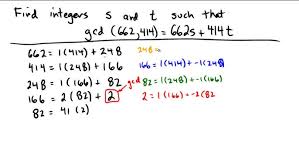 Find integers s and t such that
gcd (662,414) = 662s + 414t
662 = 1(414) + 248
248 =
414 = 1(248) + 166
166 = 1(414) + -1(248)
248 = 1(166) + 82
gcd
82 = 1(248) + -1(166)
166 = 2(82) + 2
2 = 1(166) + -2(82
82 = 41(2)